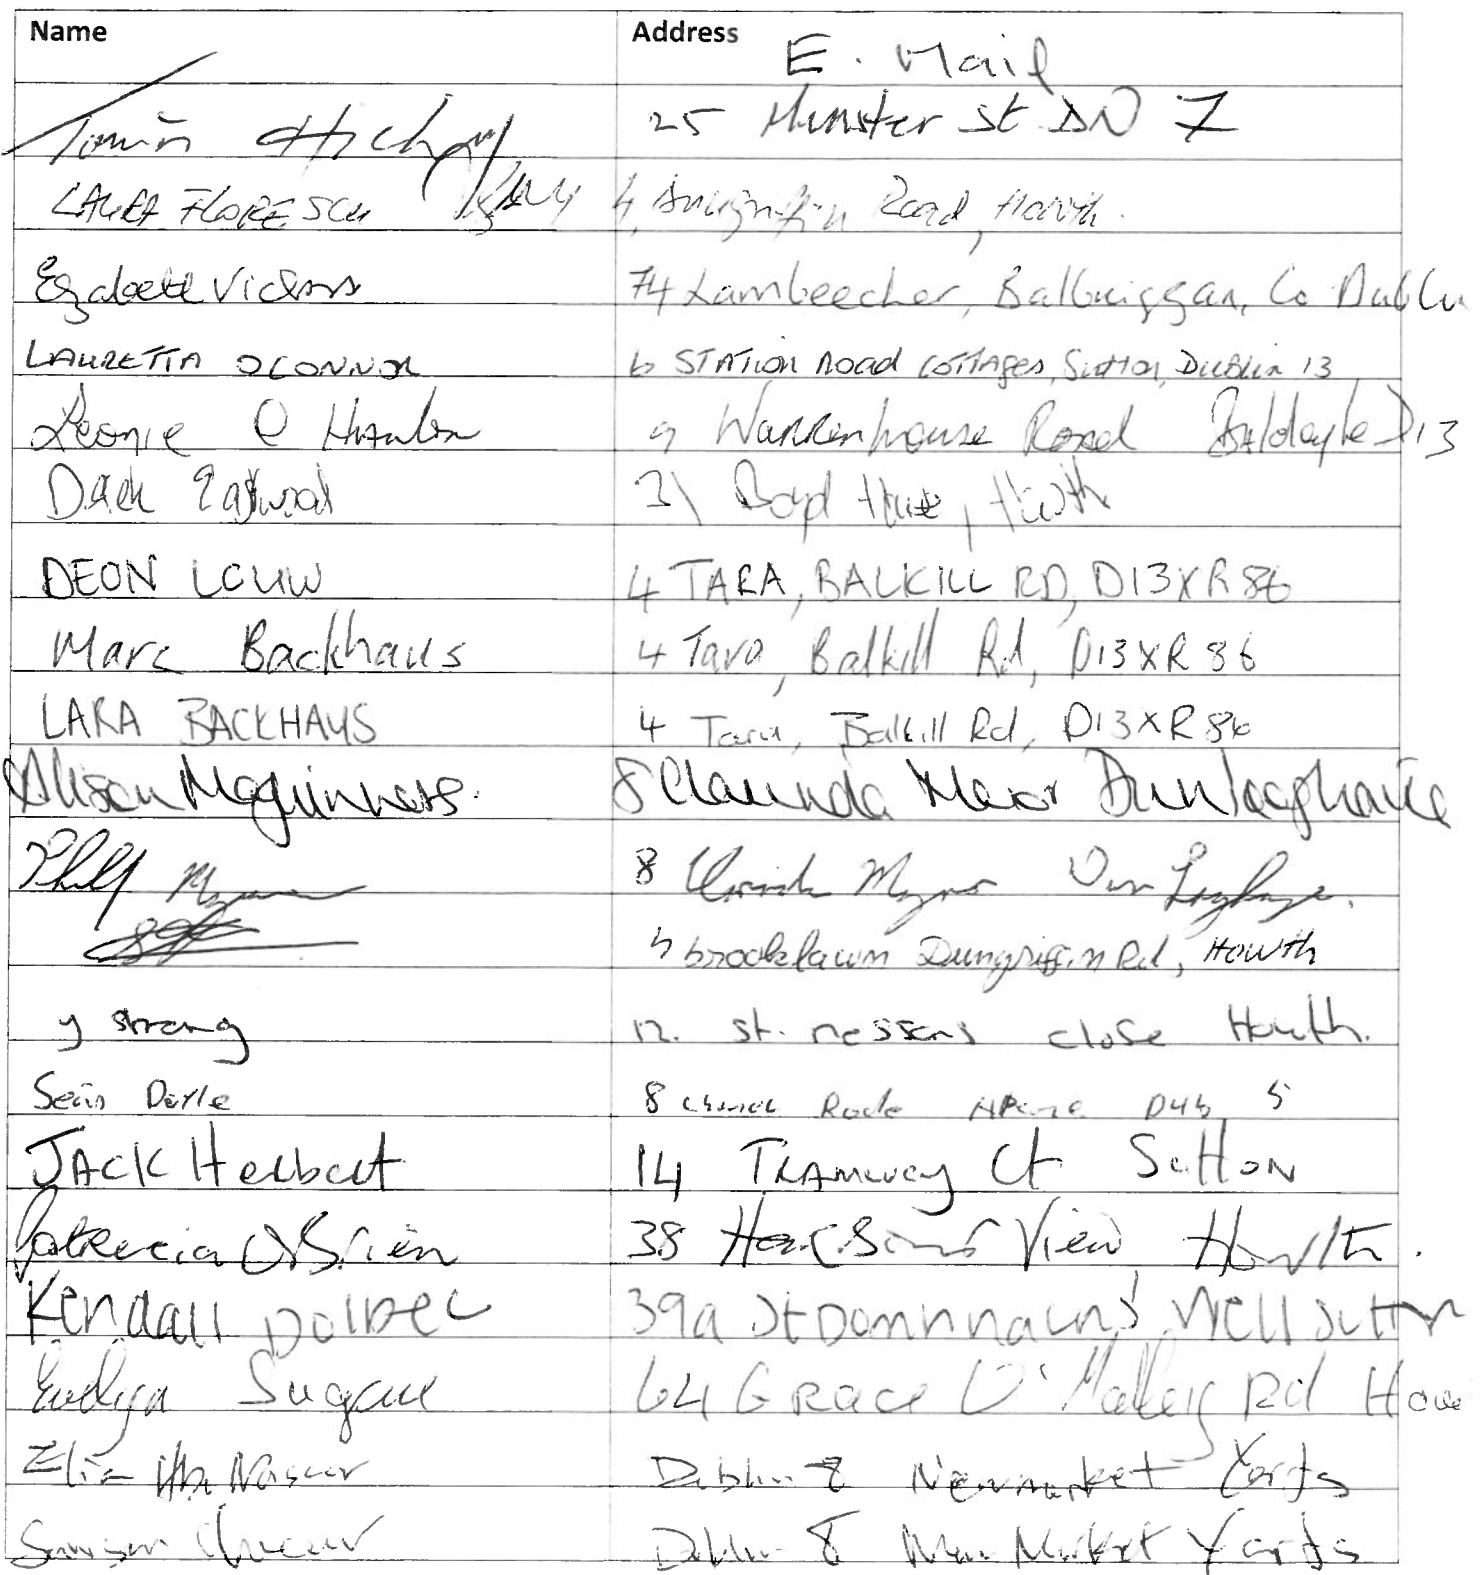 Name Address
E. Mail
25 Munster St. DN 7
LAURA FLORESCU 4, Road, Howth.
74 Lambeecher, Balbriggan, Co Dublin
LAURETTA OCONNOR 6 STATION ROAD COTTAGES, Sutton, Dublin 13
Leonie O Hanlon 9 Warrenhouse Road Baldoyle D13
31 Boyd House, Howth
DEON LOUW 4 TARA, BALKILL RD, D13XR86
Marc Backhaus 4 Tara, Balkill Rd, D13XR86
LARA BACKHAUS 4 Tara, Balkill Rd, D13XR86
Alison Maguinness. 8 Clarinda Manor Dunlaoghaire
8 Manor Dun
5 brooklawn Dungriffin Rd, Howth
y strong 12. st. nessans close Howth.
Seán Doyle 8
JACK Herbert 14 TRAMWAY Ct SuttON
Patricia O'Brien 38 View Howth.
Kendall Dolbec 39a St Well Sutton
Evelyn Sugrue 64 Grace O'Malley Rd How
Dublin 8 Newmarket Yards
Dublin 8 Market Yards